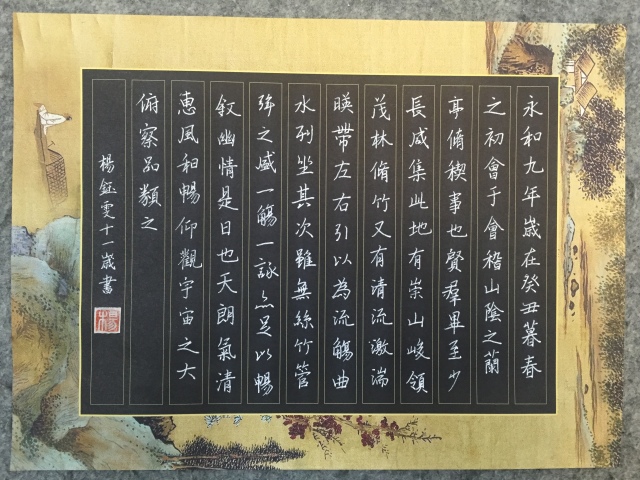 永和九年歲在癸丑暮春
之初會于會稽山陰之蘭
亭脩稧事也賢羣畢至少
長咸集此地有崇山峻領
茂林脩竹又有清流激湍
暎帶左右引以為流觴曲
水列坐其次雖無絲竹管
弦之盛一觴一詠亦足以暢
敘幽情是日也天朗氣清
惠風和暢仰觀宇宙之大
俯察品類之
楊鈺雯十一歲書
楊